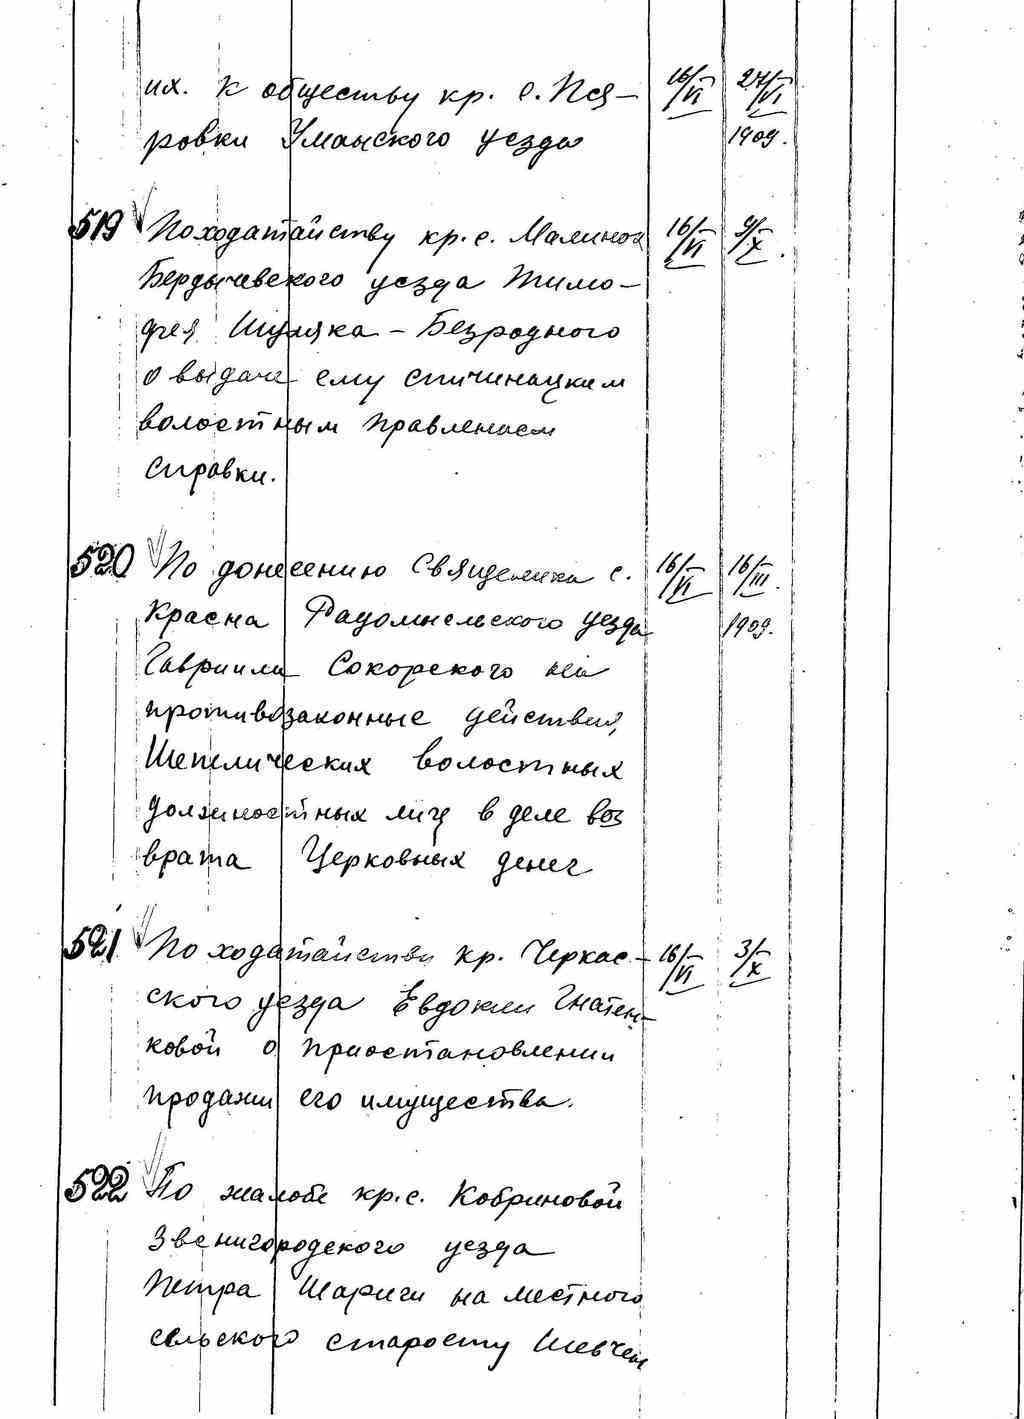 их. к обществу кр. с. Пся- 16/VI 24/VI
ровки Уманского уезда 1909.
519 По ходатайству кр. с. Малинок 16/VI 9/X.
Бердычевского уезда Тимо-
фея Шуляка - Безродного
о выдаче ему спичинацким
волостным правлением
справки.
520 По донесению Священика с. 16/VI 16/III.
Красна Радомысльского уезда 1909.
Гавриила Сокорского на
противозаконные действия,
Шепелических волостных
должностных лиц в деле воз
врата Церковных денег
521 По ходатайству кр. Черкас- 16/VI 3/X
ского уезда Евдокии Гнатен-
ковой о приостановлении
продажи его имущества.
522 По жалобе кр. с. Кобриновой
Звенигородского уезда
Петра Шариги на местного
сельского старосту Шевчен